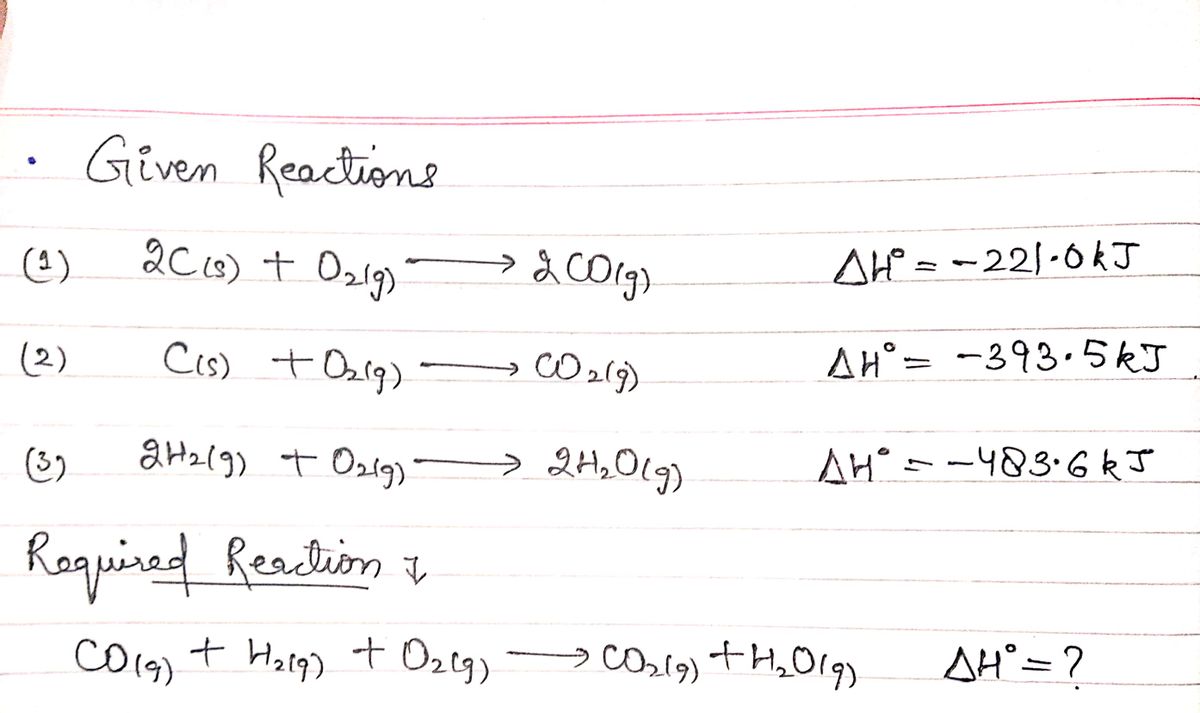 • Given Reactions
(1) 2C(s) + O₂(g) ⟶ 2CO(g) ΔH° = -221.0kJ
(2) C(s) + O₂(g) ⟶ CO₂(g) ΔH° = -393.5kJ
(3) 2H₂(g) + O₂(g) ⟶ 2H₂O(g) ΔH° = -483.6kJ
Required Reaction
CO(g) + H₂(g) + O₂(g) ⟶ CO₂(g) + H₂O(g) ΔH° = ?